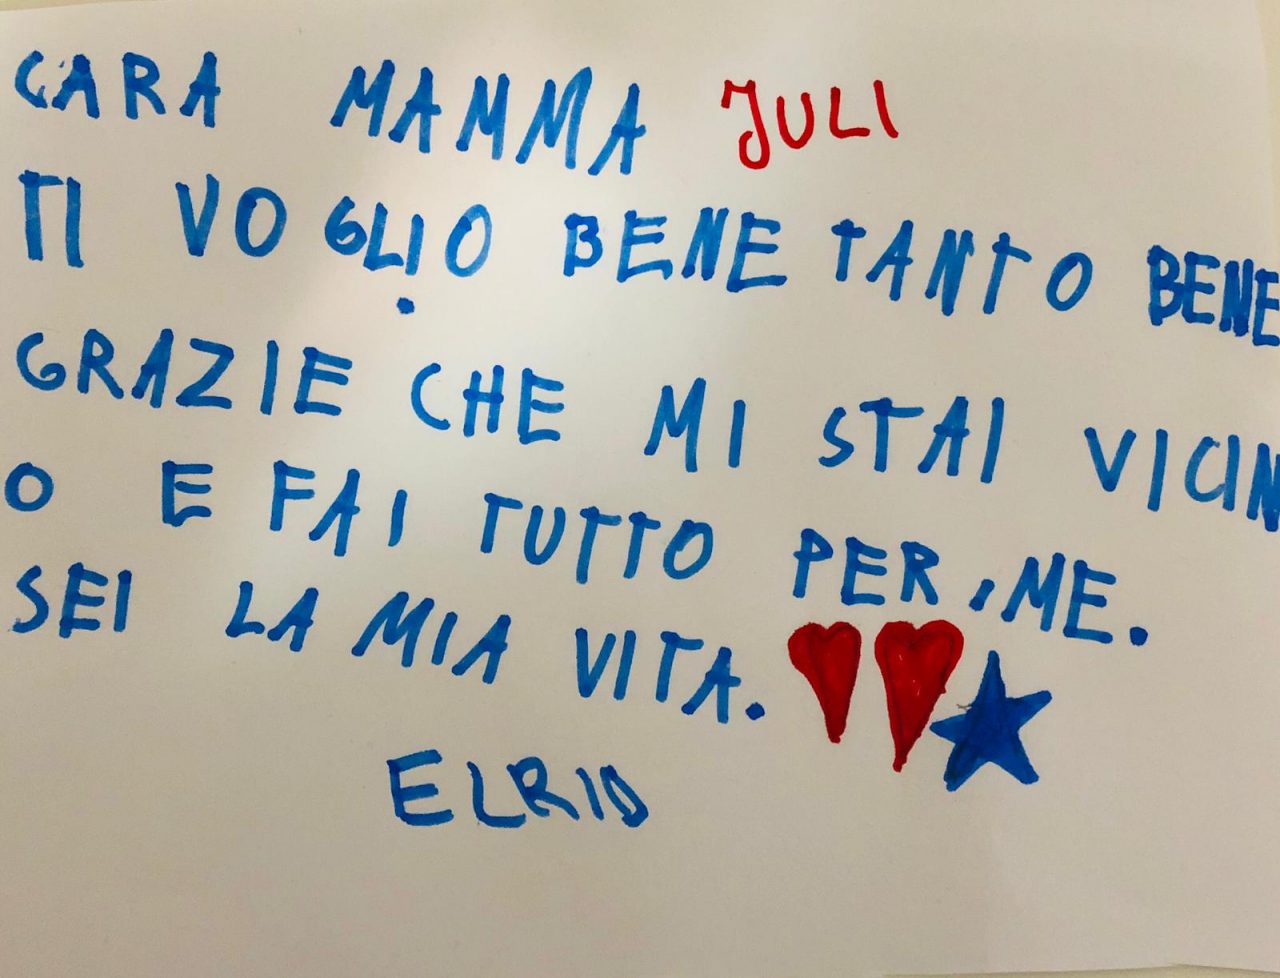 CARA MAMMA JULI
TI VOGLIO BENE TANTO BENE
GRAZIE CHE MI STAI VICIN
O E FAI TUTTO PER ME.
SEI LA MIA VITA.
ELRID